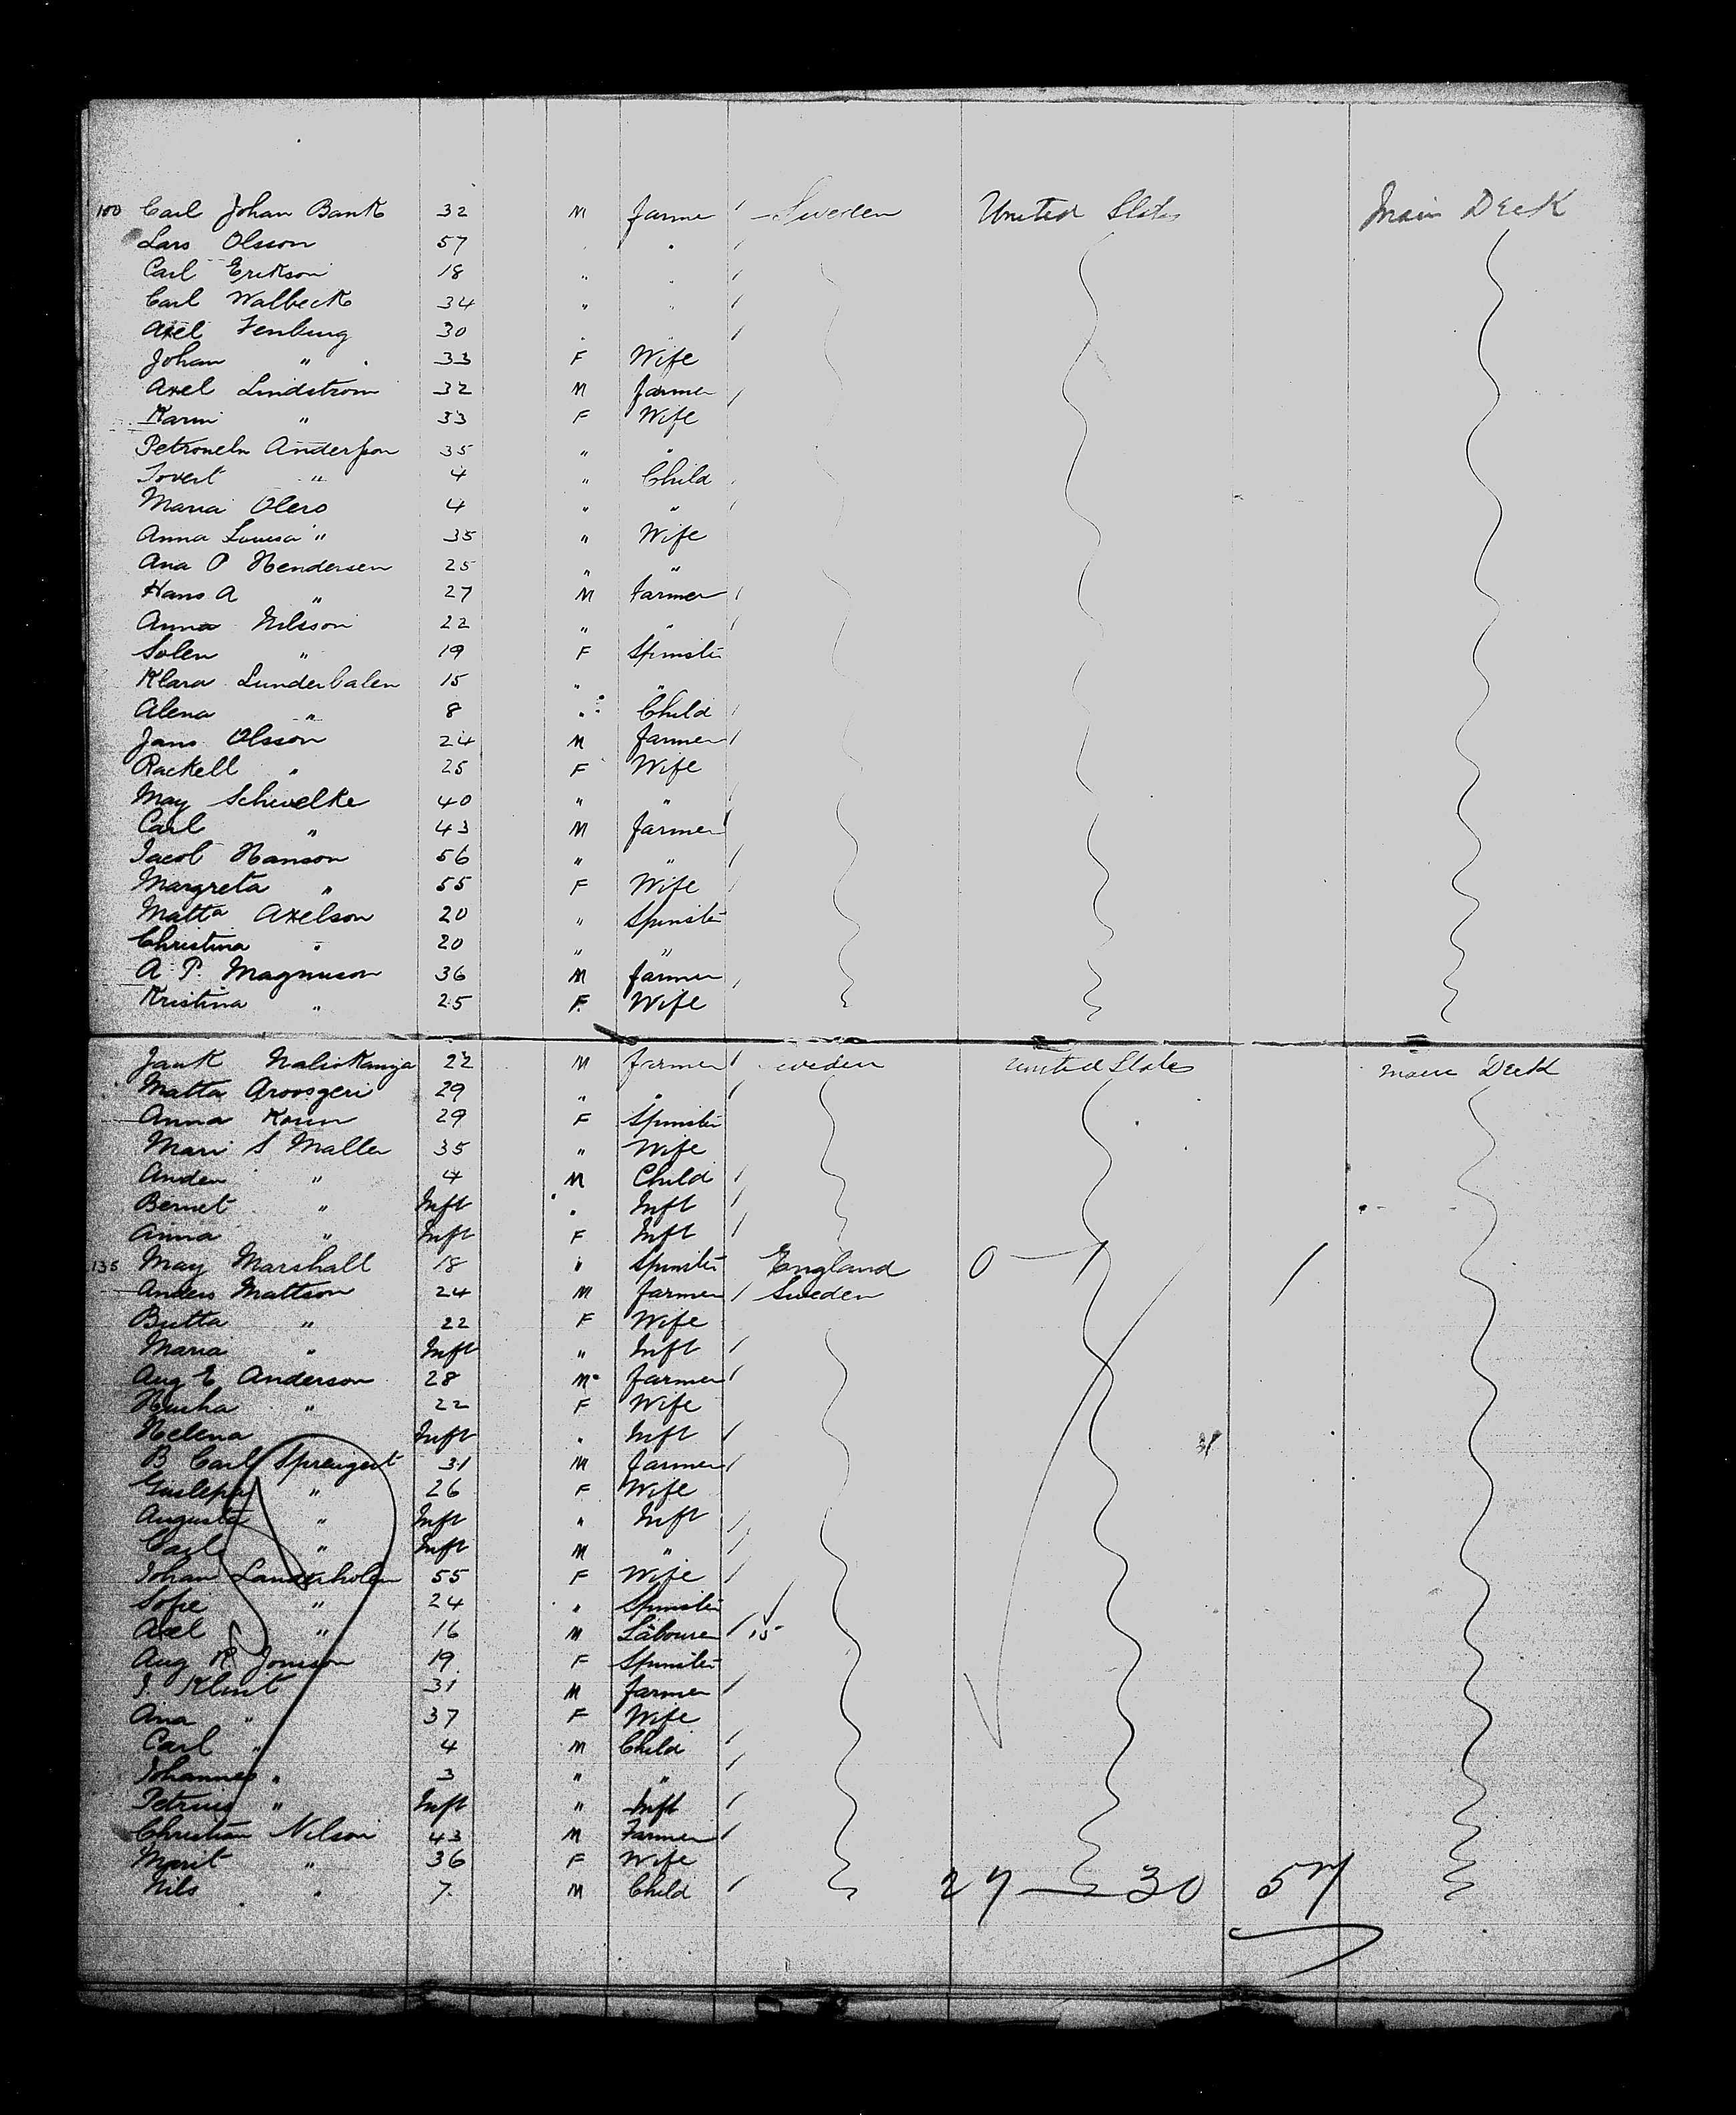 100 Carl Johan Bank 32 M farmer Sweden United States Main Deck
Lars Olsson 57 " "
Carl Erikson 18 " "
Carl Walbeck 34 " "
Axel Venburg 30 " "
Johan " 33 F Wife
Axel Lindstrom 32 M farmer
Karin " 33 F Wife
Petroneln Anderson 35 " "
Tovert " 4 " Child
Maria Olers 4 " "
Anna Louisa " 35 " Wife
Ana P Hendersen 25 " "
Hans A " 27 M farmer
Anna Nilsson 22 " "
Solen " 19 F Spinster
Klara Lunderbalen 15 " "
Alena " 8 " Child
Jans Olsson 24 M farmer
Rackell " 25 F Wife
May Schwelke 40 " "
Carl " 43 M farmer
Jacob Hanson 56 " "
Margreta " 55 F Wife
Matta Axelson 20 " Spinster
Christina " 20 " "
A. P. Magnuson 36 M farmer
Kristina " 25 F Wife
Jank 22 M farmer Sweden United States Main Deck
Matta Groosgeri 29 " "
Anna 29 F Spinster
Mari S Maller 35 " Wife
Anden " 4 M Child
Bernet " Inft " Inft
Anna " Inft F Inft
135 May Marshall 18 " Spinster England 0 — 1 /
Anders Mattson 24 M farmer Sweden
Butta " 22 F Wife
Maria " Inft " Inft
Aug E Anderson 28 M farmer
" 22 F Wife
Helena Inft " Inft
B Carl Sprengert 31 M farmer
" 26 F Wife
Augusta " Inft " Inft
Carl " Inft M "
Johan Landerholm 55 F Wife
Sofie " 24 " Spinster
Axel " 16 M Labourer 15
Aug R Jonsson 19 F Spinster
J Klint 31 M farmer
Ana " 37 F Wife
Carl " 4 M Child
Johannes " 3 " "
Petrius " Inft " Inft
Christian Nilson 43 M Farmer
Marit " 36 F Wife
Nils " 7 M Child 27 — 30 57